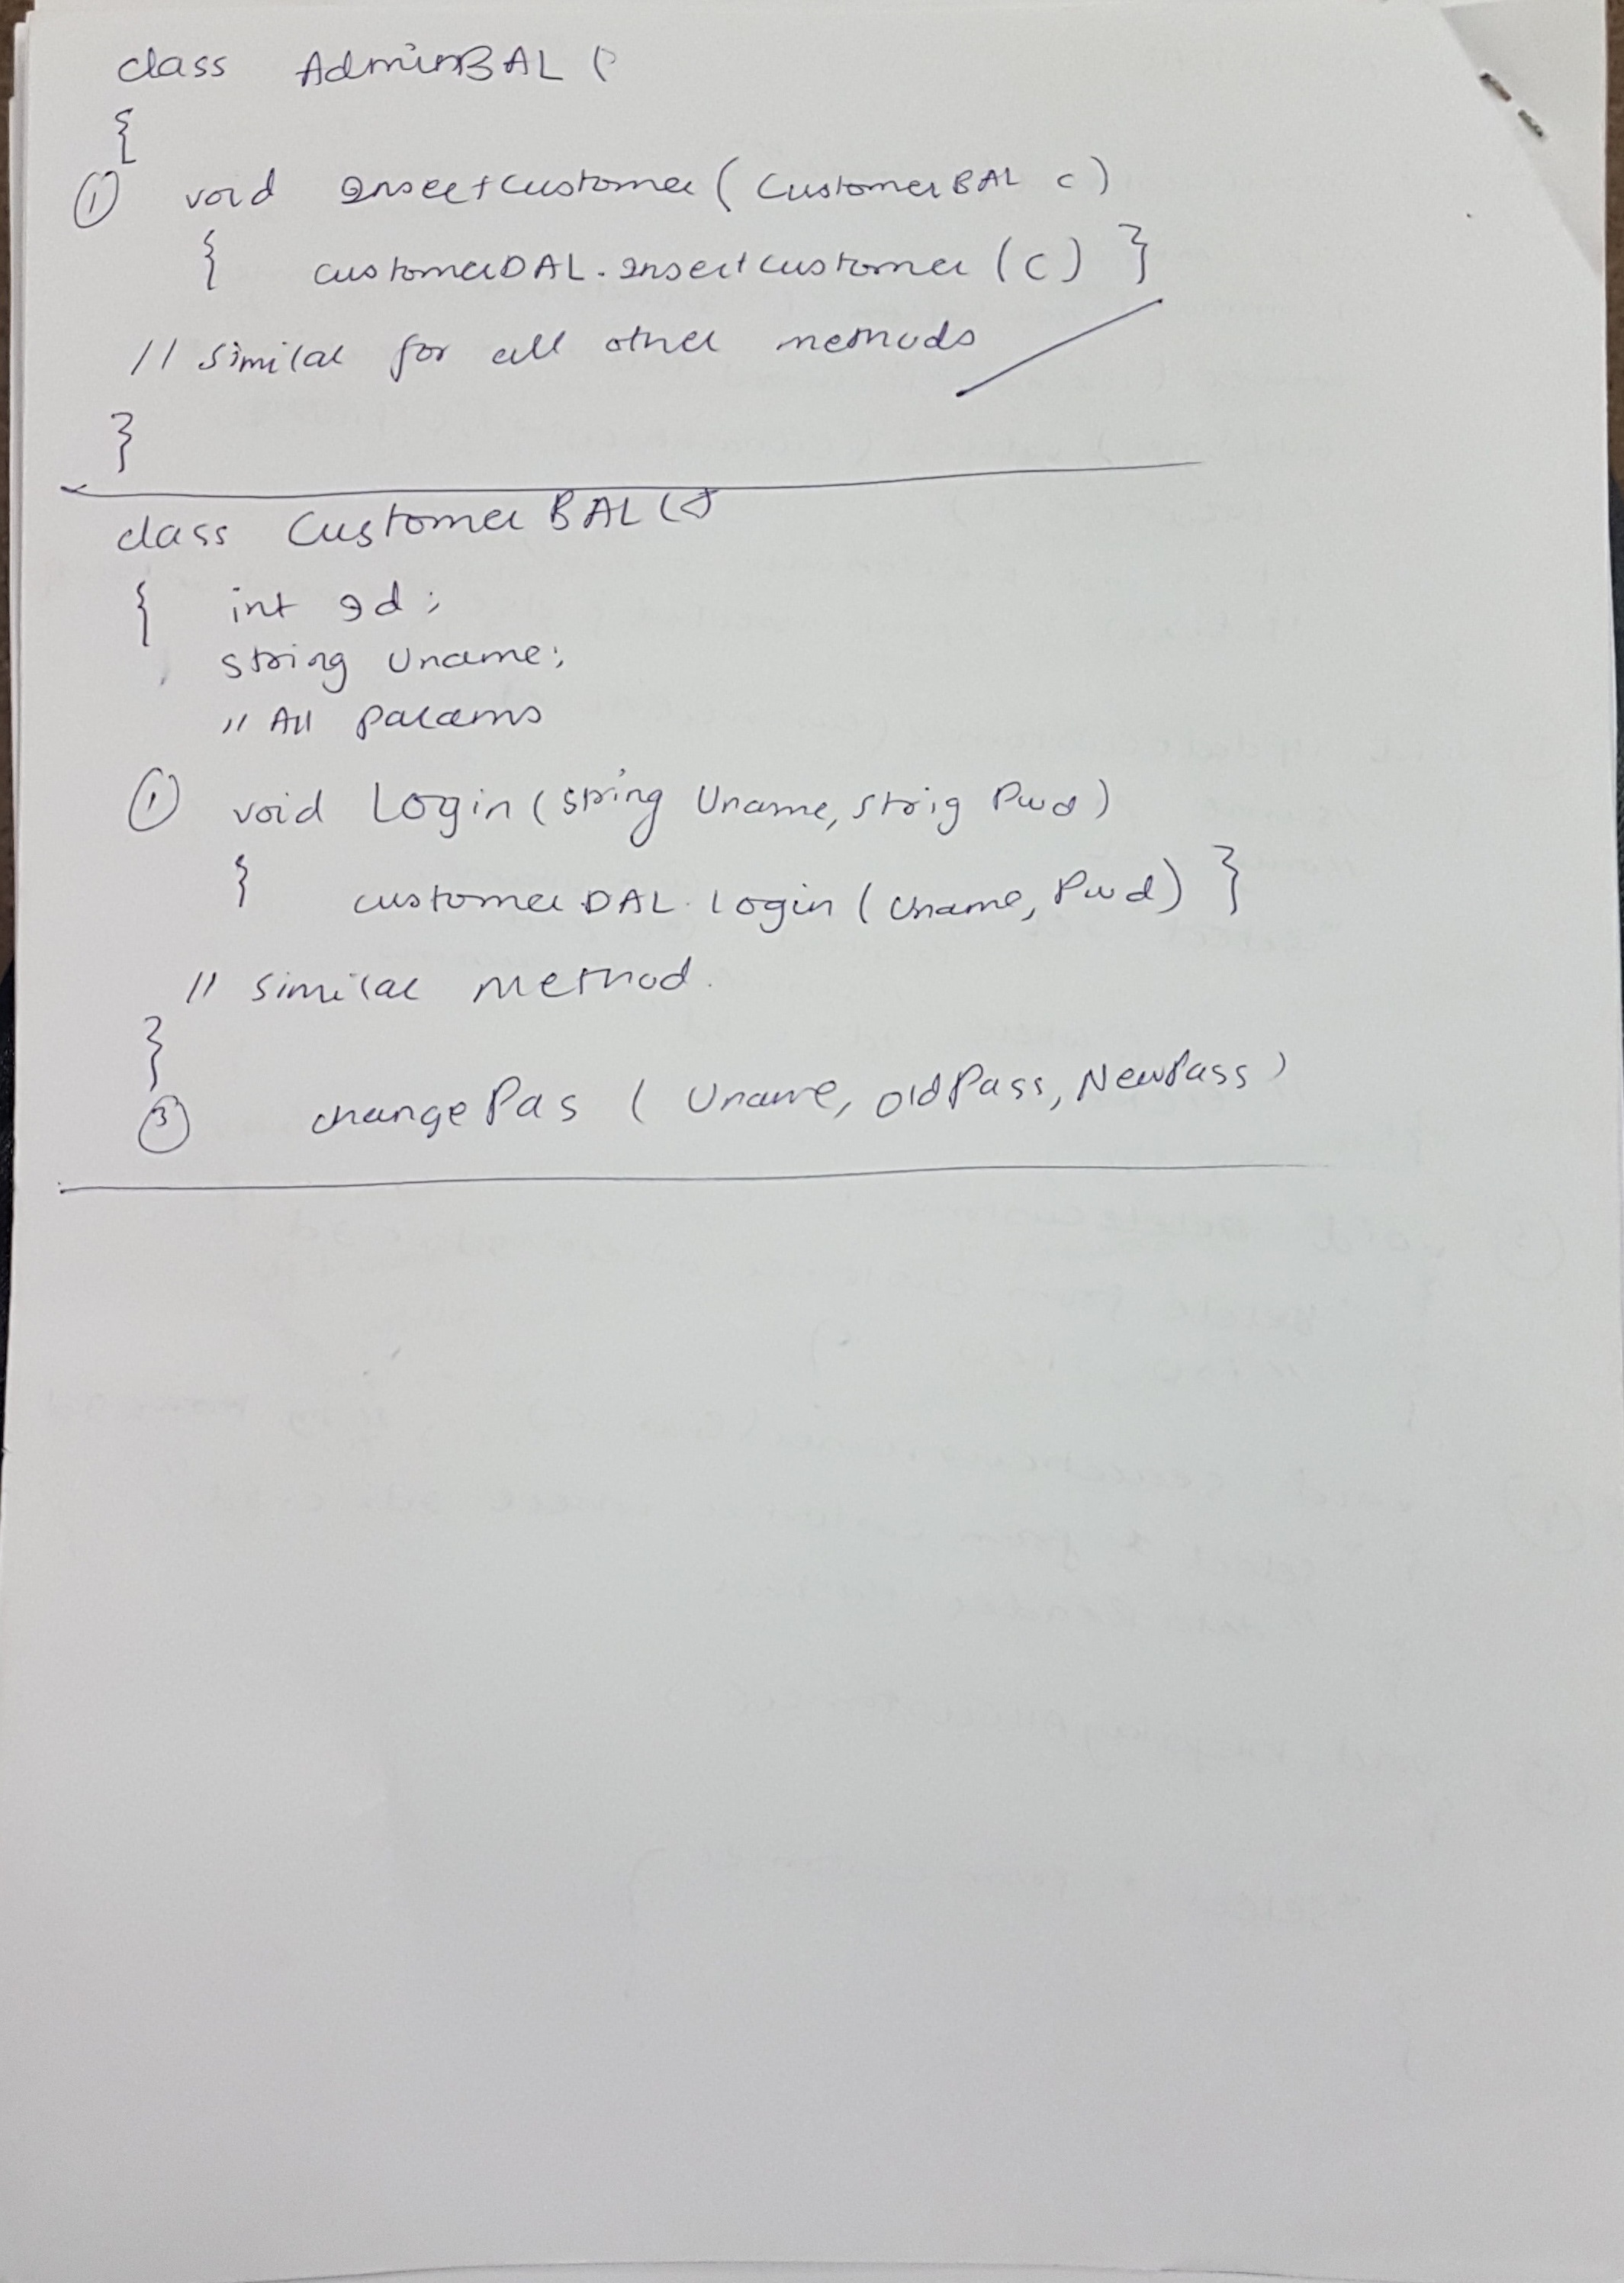 class AdminBAL (
{
① void InsertCustomer ( CustomerBAL c )
{ customerDAL.InsertCustomer (c) }
// Similar for all other methods
}
class CustomerBAL (
{ int Id ;
string Uname;
// All params
① void Login ( string Uname, strig Pwd )
{ customerDAL.Login ( Uname, Pwd) }
// similar method.
}
③ changePas ( Uname, oldPass, NewPass )